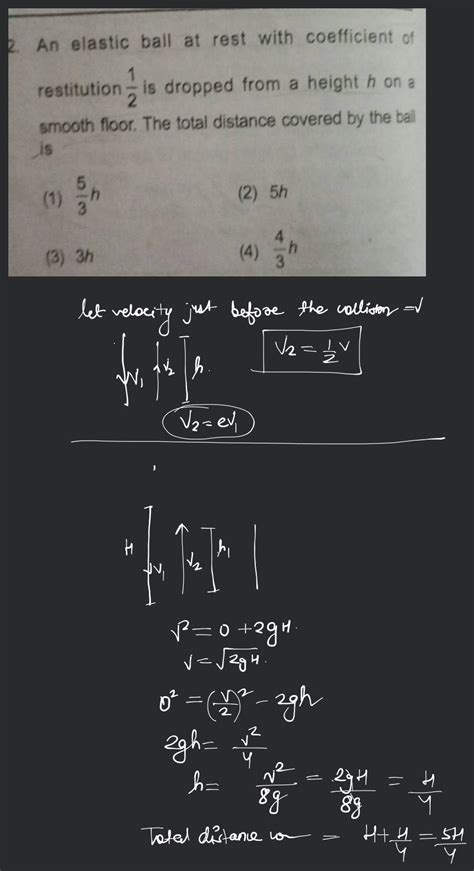 2. An elastic ball at rest with coefficient of
restitution 1/2 is dropped from a height h on a
smooth floor. The total distance covered by the ball
is
(1) 5/3 h (2) 5h
(3) 3h (4) 4/3 h
let velocity just before the collision = v
V₂ = 1/2 v
V₁ V₂ h
V₂ = eV₁
H V₁ V₂ h₁
v² = 0 + 2gH.
v = √2gH.
0² = (v/2)² - 2gh
2gh = v²/4
h = v²/8g = 2gH/8g = H/4
Total distance = H + H/4 = 5H/4